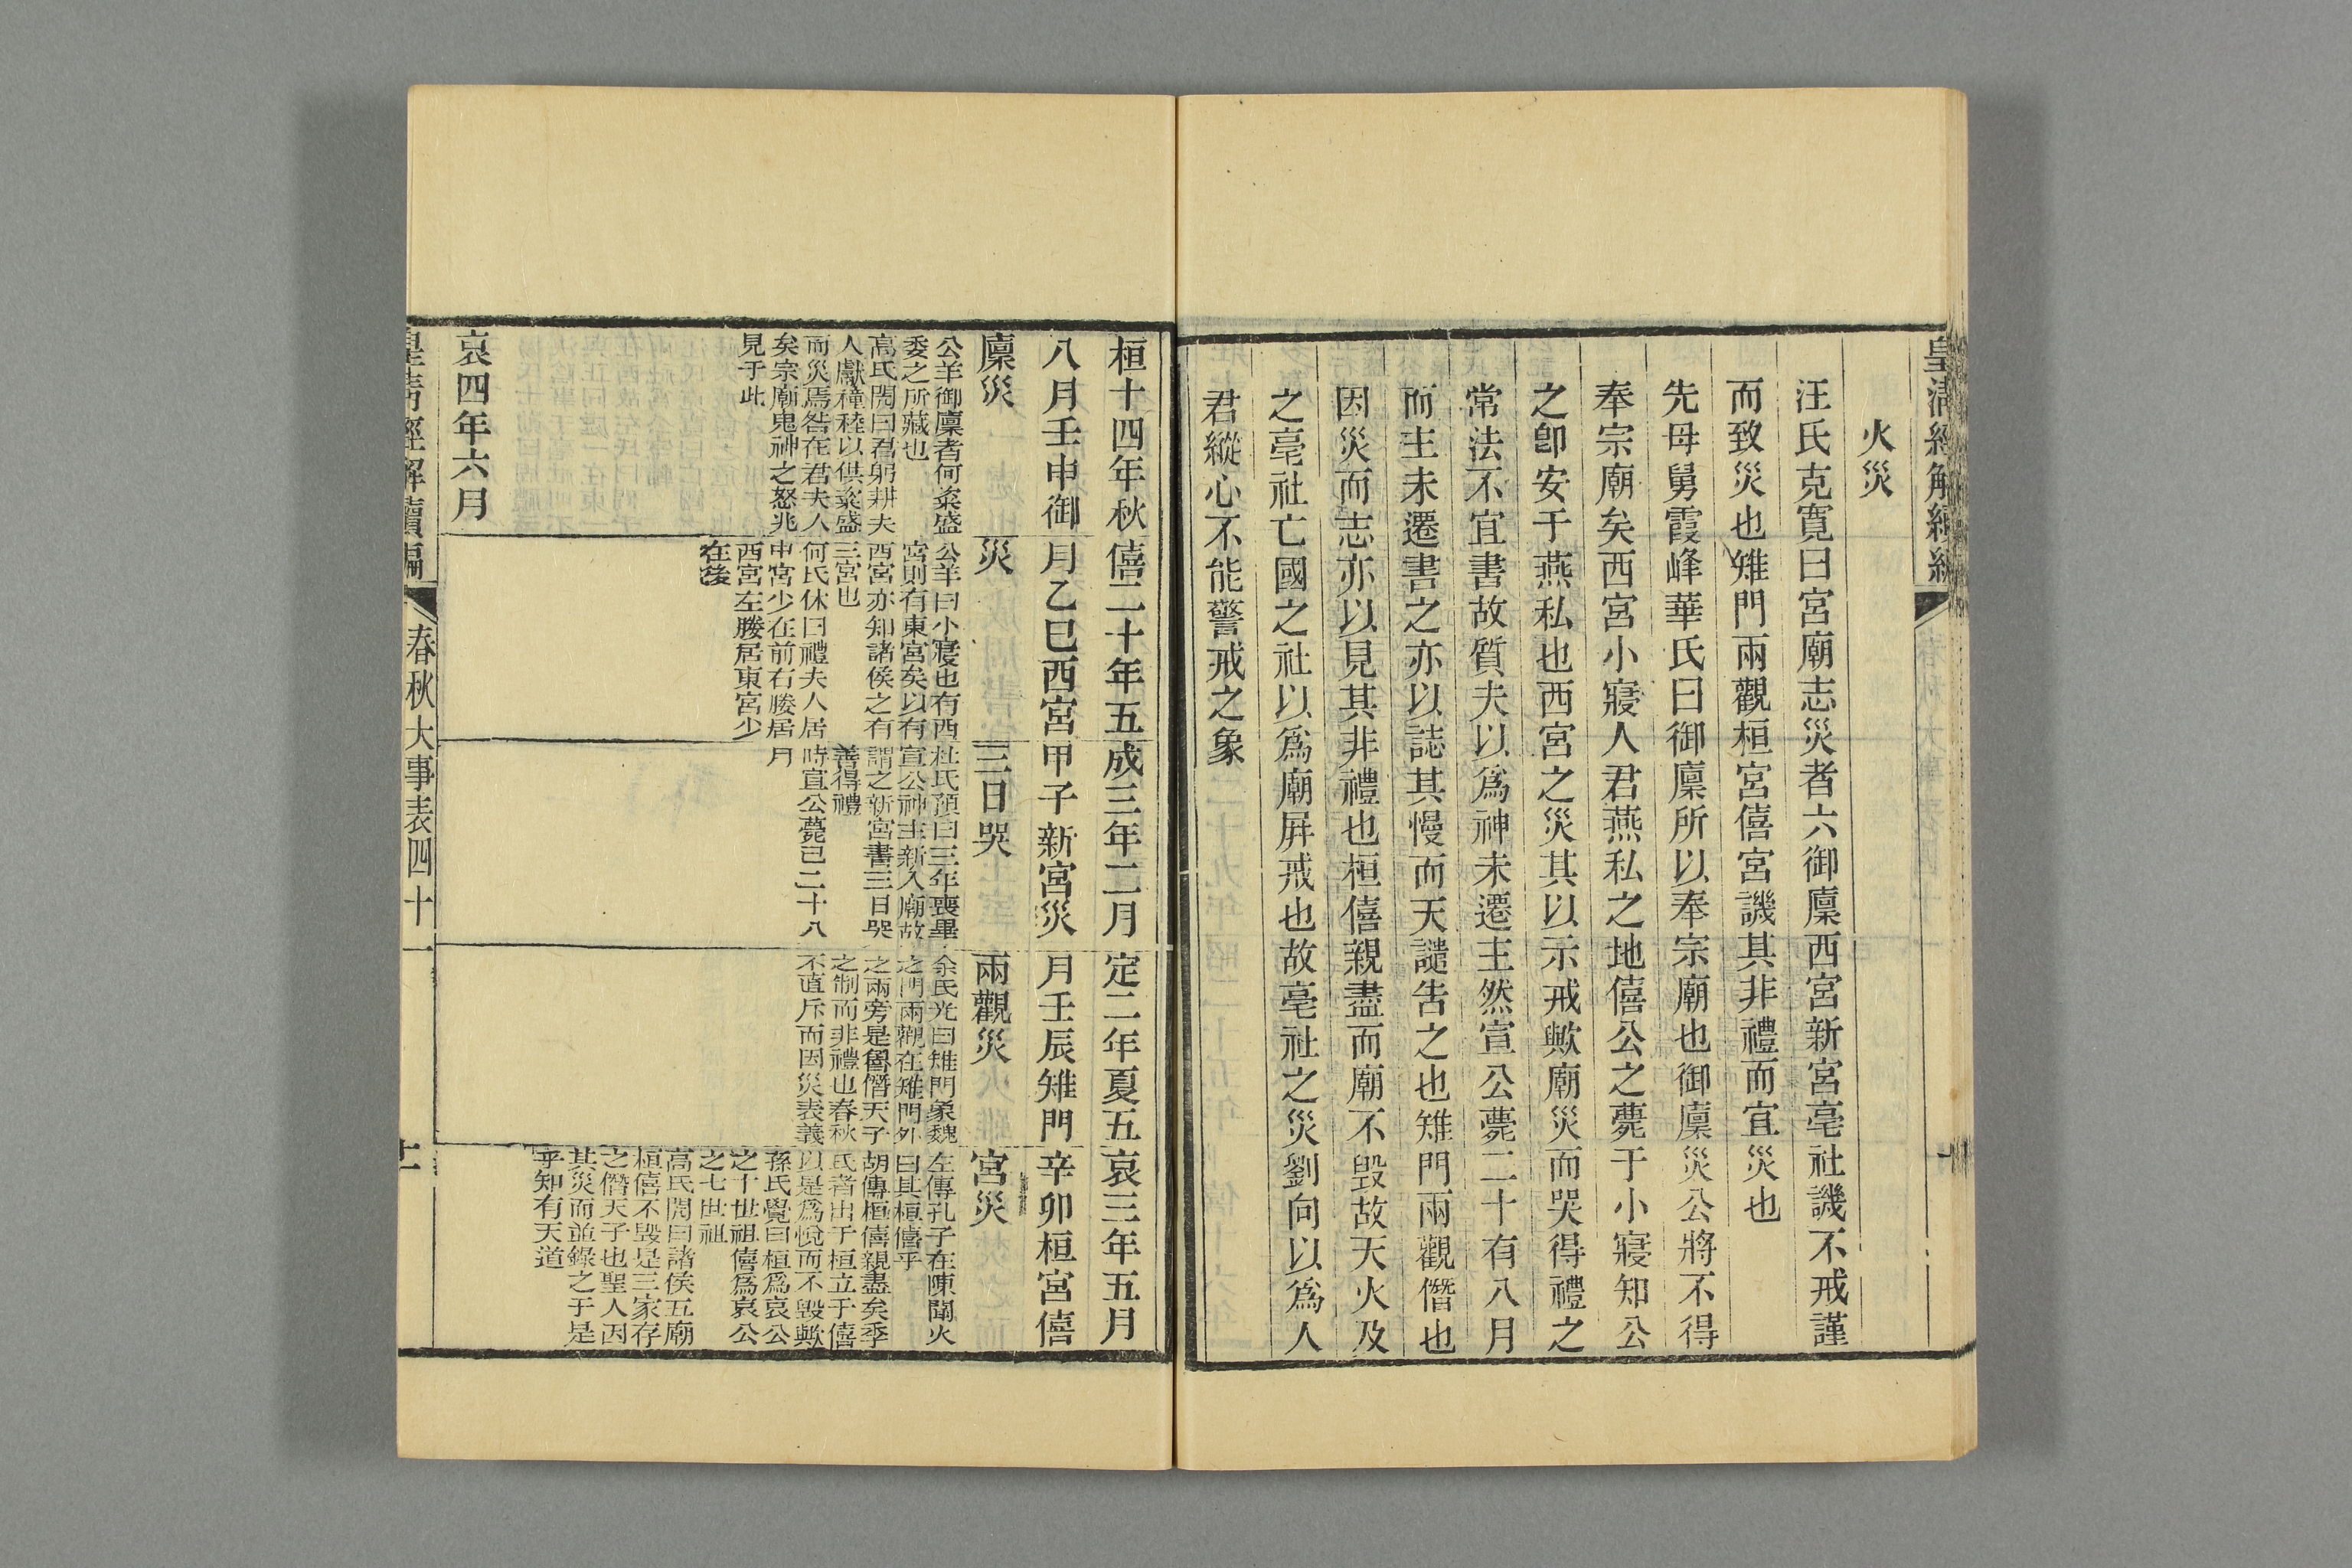 皇清經解續編
火災
汪氏克寬曰宮廟志災者六御廩西宮新宮亳社譏不戒謹
而致災也雉門兩觀桓宮僖宮譏其非禮而宜災也
先母舅霞峰華氏曰御廩所以奉宗廟也御廩災公將不得
奉宗廟矣西宮小寢人君燕私之地僖公之薨于小寢知公
之卽安于燕私也西宮之災其以示戒歟廟災而哭得禮之
常法不宜書故質夫以爲神主未遷然宣公薨二十有八月
而主未遷書之亦以誌其慢而天譴吿之也雉門兩觀僭也
因災而志亦以見其非禮也桓僖親盡而廟不毀故天火及
之亳社亡國之社以爲廟屛戒也故亳社之災劉向以爲人
君縱心不能警戒之象
桓十四年秋
八月壬申御
廩災
公羊御廩者何粢盛
委之所藏也
高氏閌曰君躬耕夫
人獻穜稑以供粢盛
而災焉咎在君夫人
矣宗廟鬼神之怒兆
見于此
僖二十年五
月乙巳西宮
災
公羊曰小寢也有西
宮則有東宮矣以有
西宮亦知諸侯之有
三宮也
何氏休曰禮夫人居
中宮少在前右媵居
西宮左媵居東宮少
在後
成三年二月
甲子新宮災
三日哭
杜氏預曰三年喪畢
宣公神主新入廟故
謂之新宮書三日哭
善得禮
時宣公薨已二十八
月
定二年夏五
月壬辰雉門
兩觀災
余氏光曰雉門象魏
之門兩觀在雉門外
之兩旁是魯僭天子
之制而非禮也春秋
不直斥而因災表義
哀三年五月
辛卯桓宮僖
宮災
左傳孔子在陳聞火
曰其桓僖乎
胡傳桓僖親盡矣季
氏者出于桓立于僖
以是爲悅而不毀歟
孫氏覺曰桓爲哀公
之十世祖僖爲哀公
之七世祖
高氏閌曰諸侯五廟
桓僖不毀是三家存
之僭天子也聖人因
其災而並錄之于是
乎知有天道
哀四年六月
皇淸經解續編
春秋大事表四十一
十一